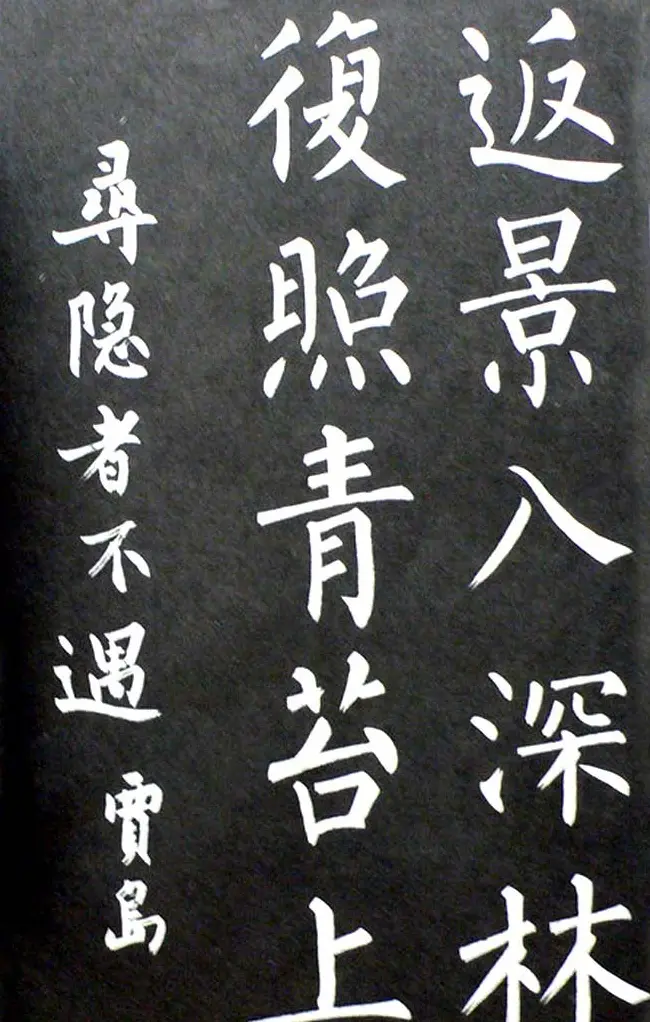 返景入深林
復照青苔上
尋隐者不遇 賈島